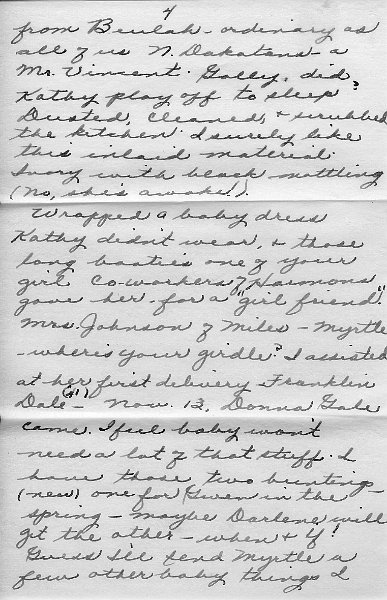 4
from Beulah - ordinary as
all of us N. Dakotans - a
Mr. Vincent. Golly, did
Kathy play off to sleep?
Dusted, cleaned, & scrubbed
the kitchen. I surely like
this inlaid material.
Ivory with black mottling
(No, she's awake!).
Wrapped a baby dress
Kathy didn't wear, & those
long booties one of your
girl co-workers of Harmons
gave her for a "girl friend".
Mrs. Johnson of Miles - Myrtle
- where's your girdle? I assisted
at her first delivery - Franklin
Dale - ("1") Nov. 13, Donna Gale
came. I feel baby won't
need a lot of that stuff. I
have those two bunting -
(new) one for Gwen in the
spring - maybe Darlene will
get the other - when & if!
Guess I'll send Myrtle a
few other baby things I